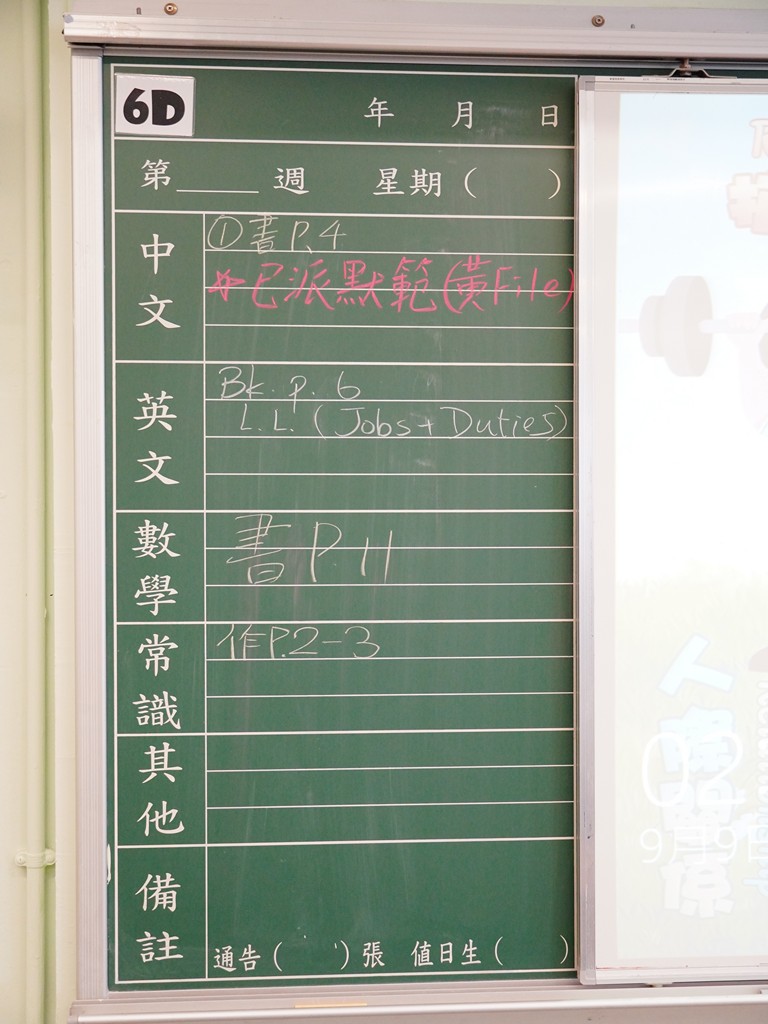 6D
年 月 日
第____週 星期( )
中文
①書P.4
*已派默範(黃File)
英文
Bk. p. 6
L.L. (Jobs + Duties)
數學
書P.11
常識
作P.2-3
其他
備註
通告( )張 值日生( )
人際關係
02
9月9日